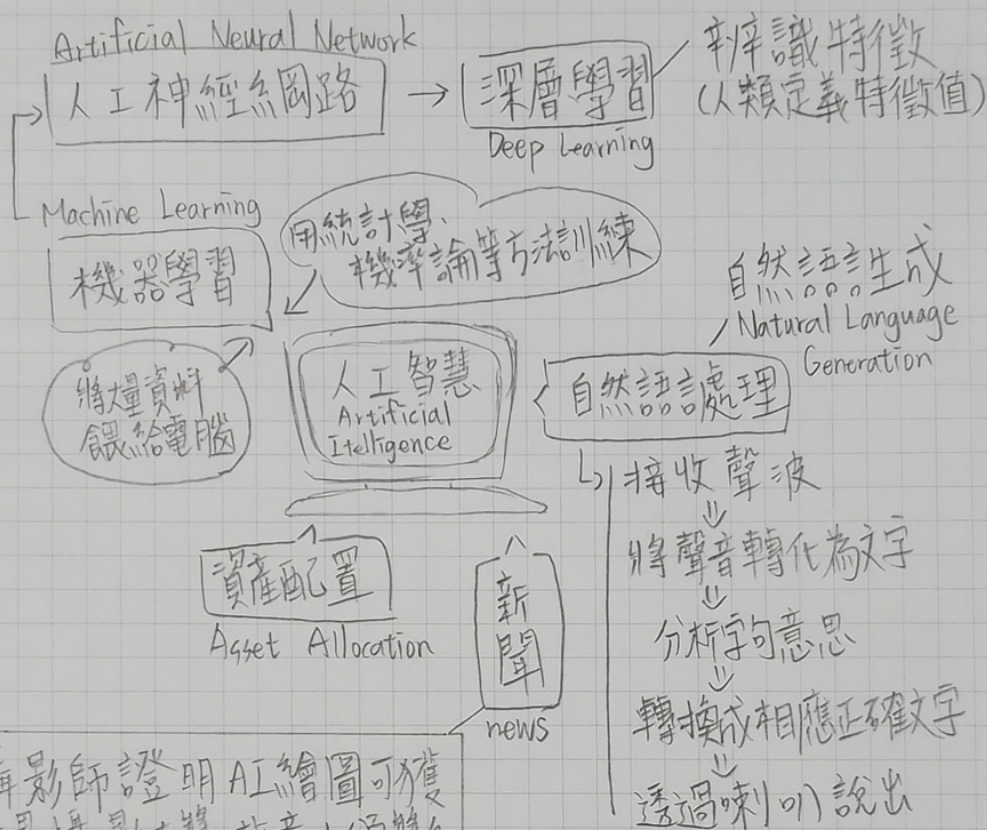 Artificial Neural Network
人工神經網路
深層學習
Deep Learning
辨識特徵
(人類定義特徵值)
Machine Learning
機器學習
用統計學、
機率論等方法訓練
將大量資料
餵給電腦
人工智慧
Artificial
Itelligence
自然語言生成
Natural Language
Generation
自然語言處理
接收聲波
將聲音轉化為文字
分析字句意思
轉換成相應正確文字
透過喇叭說出
資產配置
Asset Allocation
新聞
news
影師證明AI繪圖可獲